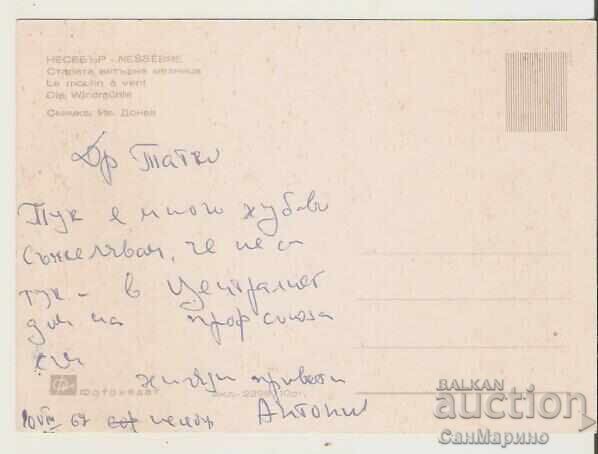 НЕСЕБЪР - NESSEBRE
Старата вятърна мелница
Le moulin à vent
Die Windmühle
Снимка: Ив. Донев
Др Татко
Тук е много хубаво
Съжелявам, че не са
тук - в Централист
дом на профсоюза
съм
хиляди привети
Фотоиздат
67
Антони
BALKAN
auction
СанМарино